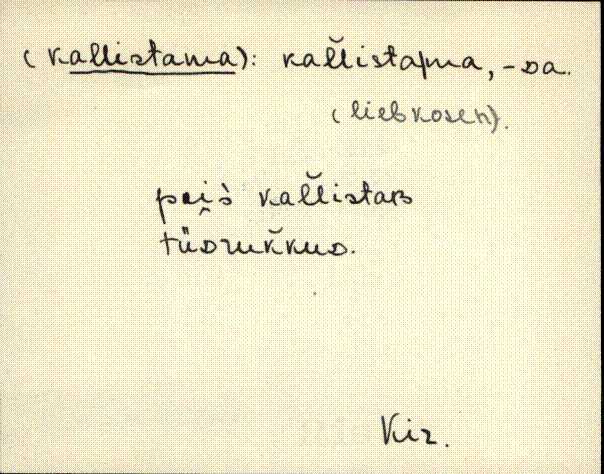 (kallistama): kal̆listaᴘma, -ᴅa.
(liebkosen).
pɑiś kal̆listaʙ
tǖᴅruk̆kuᴅ.
Kir.